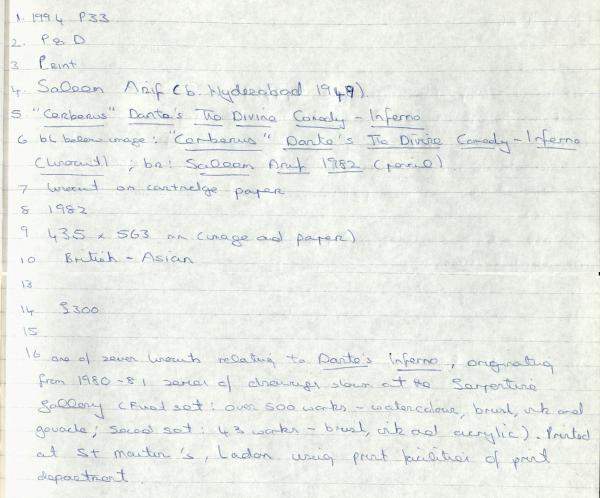 1. 1994 P33
2. P & D
3 Print
4. Saleem Arif (b. Hyderabad 1949).
5 "Cerberus" Dante's The Divine Comedy - Inferno
6 bl below image: "Cerberus" Dante's The Divine Comedy - Inferno
(linocut) ; br: Saleem Arif 1982 (pencil)
7 linocut on cartridge paper
8 1982
9 435 x 563 mm (image and paper)
10 British - Asian
13
14 £300
15
16 one of seven linocuts relating to Dante's Inferno, originating
from 1980-81 series of drawings shown at the Serpentine
Gallery (First set: over 500 works - watercolour, brush, ink and
gouache; second set: 43 works - brush, ink and acrylic). Printed
at St Martin's, London using print facilities of print
department.